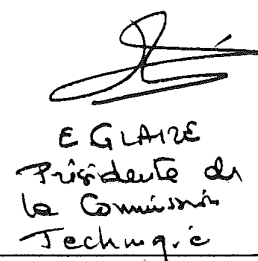 E GLAIZE
Présidente de
la Commission
Technique